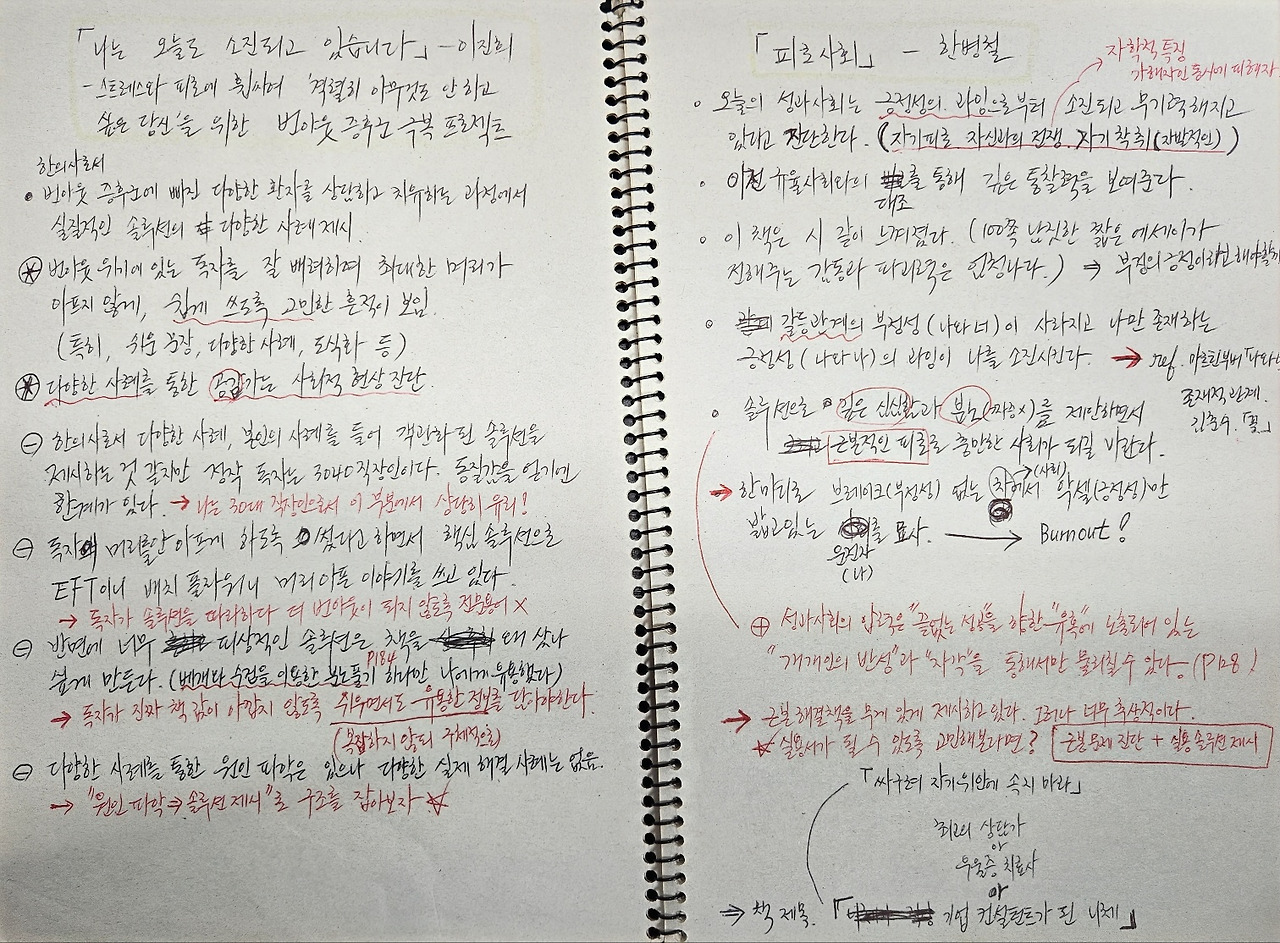 「나는 오늘도 소진되고 있습니다」 - 이진희
- 스트레스와 피로에 휩싸여 '격렬히 아무것도 안 하고
싶은 당신'을 위한 번아웃 증후군 극복 프로젝트
한의사로서
• 번아웃 증후군에 빠진 다양한 환자를 상담하고 치유하는 과정에서
실질적인 솔루션의 다양한 사례 제시.
번아웃 위기에 있는 독자를 잘 배려하며 최대한 머리가
아프지 않게, 쉽게 쓰도록 고민한 흔적이 보임.
(특히, 쉬운 문장, 다양한 사례, 도식화 등)
다양한 사례를 통한 공감가는 사회적 현상 진단.
⊖ 한의사로서 다양한 사례, 본인의 사례를 들어 객관화 된 솔루션을
제시하는 것 같지만 정작 독자는 3040 직장인이다. 동질감을 얻기엔
한계가 있다. → 나는 30대 직장인으로서 이 부분에서 상당히 유리!
⊖ 독자 머리를 안 아프게 하도록 썼다고 하면서 핵심 솔루션으로
EFT이니 배치 플라워니 머리아픈 이야기를 쓰고 있다.
→ 독자가 솔루션을 따라하다 더 번아웃이 되지 않도록 전문용어 X
⊖ 반면에 너무 피상적인 솔루션은 책을 왜 샀나
싶게 만든다. (베개와 수건을 이용한 분노풀기 하나만 나에게 유용했다)
P184
→ 독자가 진짜 책 값이 아깝지 않도록 쉬우면서도 유용한 정보를 담아야한다.
(복잡하지 않되 구체적으로)
⊖ 다양한 사례를 통한 원인 파악은 있으나 다양한 실제 해결 사례는 없음.
→ "원인 파악 → 솔루션 제시"로 구조를 잡아보자 ☆
「피로사회」 - 한병철
자학적 특징
가해자인 동시에 피해자
• 오늘의 성과사회는 긍정성의 과잉으로부터 소진되고 무기력해지고
있다고 진단한다. (자기피로 자신과의 전쟁, 자기착취(자발적인))
• 이전 규율사회와의 를 통해 깊은 통찰력을 보여준다.
대조
• 이 책은 시 같이 느껴졌다. (100쪽 남짓한 짧은 에세이가
전해주는 감동과 파괴력은 엄청나다.) ⇒ 부정의 긍정이라고 해야할까
• 갈등관계의 부정성 (나와 너)이 사라지고 나만 존재하는
긍정성 (나와 나)의 과잉이 나를 소진시킨다. → ref. 마르틴부버 「나와 너
존재적 관계.
김춘수.「꽃」
• 솔루션으로 깊은 심심함과 분노(짜증x)를 제안하면서
근본적인 피로로 충만한 사회가 되길 바란다.
→ 한마디로 브레이크(부정성) 없는 차에서 악셀(긍정성)만
(사회)
밟고있는 를 묘사. → Burnout!
운전자
(나)
⊕ 성과사회의 압력은 "끝없는 성공"을 향한 "유혹"에 노출되어 있는
"개개인의 반성"과 "자각"을 통해서만 물리칠 수 있다. (P128)
→ 근본 해결책을 무게 있게 제시하고 있다. 그러나 너무 추상적이다.
☆ 실용서가 될 수 있도록 고민해본다면? 근본 문제 진단 + 실용 솔루션 제시
「싸구려 자기위안에 속지 마라」
최고의 상담가
아
우울증 치료사
아
⇒ 책 제목. 「 기업 컨설턴트가 된 니체」